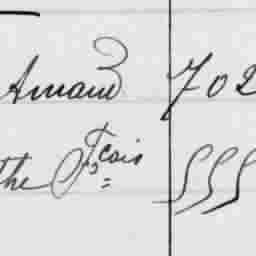 Amand 702
the Fcois 555